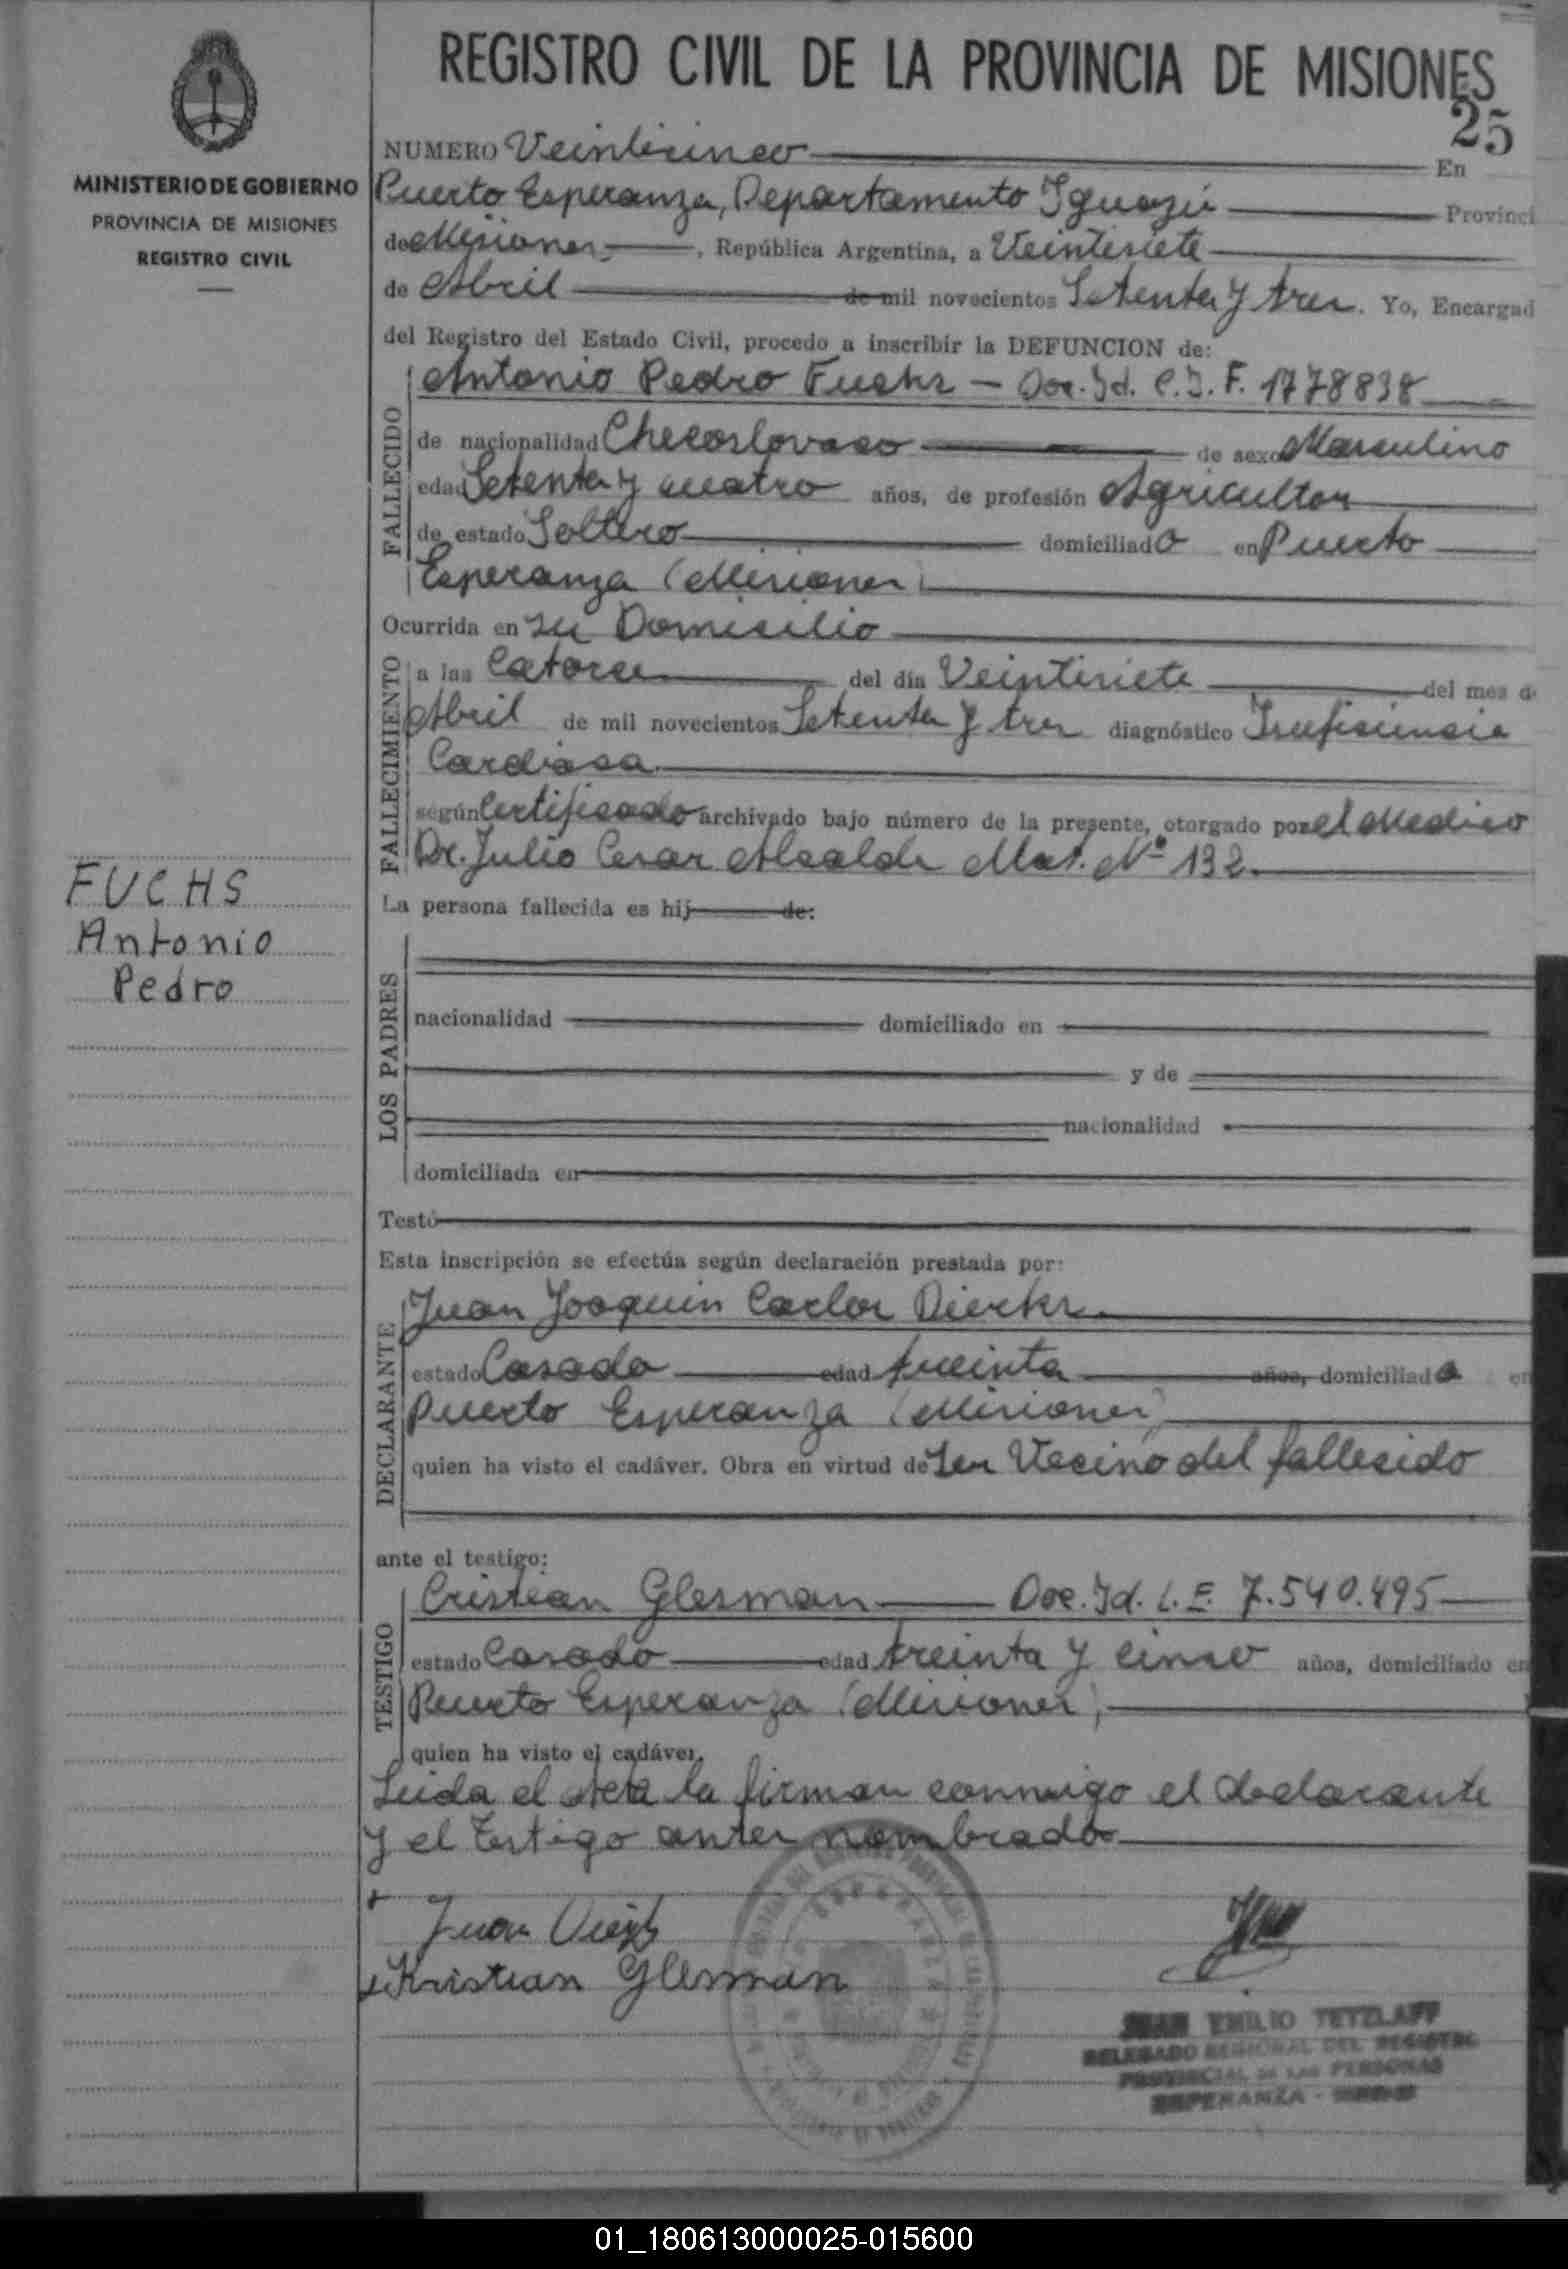 REGISTRO CIVIL DE LA PROVINCIA DE MISIONES
25
MINISTERIO DE GOBIERNO
PROVINCIA DE MISIONES
REGISTRO CIVIL
NUMERO Veinticinco En
Puerto Esperanza, Departamento Iguazú Provinci
de Misiones, República Argentina, a Veintisiete
de Abril de mil novecientos Setenta y tres. Yo, Encargad
del Registro del Estado Civil, procedo a inscribir la DEFUNCION de:
FALLECIDO
Antonio Pedro Fuchs - Doc. Id. C.I.F. 1778838
de nacionalidad Checoslovaco de sexo Masculino
edad Setenta y cuatro años, de profesión Agricultor
de estado Soltero domiciliado en Puerto
Esperanza (Misiones)
Ocurrida en su Domicilio
FALLECIMIENTO
a las Catorce del día Veintisiete del mes d
Abril de mil novecientos Setenta y tres diagnóstico Insuficiencia
Cardiaca
según Certificado archivado bajo número de la presente, otorgado por el Medico
Dr. Julio Cesar Alcalde Mat. Nº 132.
FUCHS
Antonio
Pedro
La persona fallecida es hij de:
LOS PADRES
nacionalidad domiciliado en
y de
nacionalidad
domiciliada en
Testó
Esta inscripción se efectúa según declaración prestada por:
DECLARANTE
Juan Joaquin Carlos Dierks
estado Casado edad treinta años, domiciliado en
Puerto Esperanza (Misiones)
quien ha visto el cadáver. Obra en virtud de ser Vecino del fallecido
ante el testigo:
TESTIGO
Cristian Glesman Doc. Id. L.E. 7.540.495
estado Casado edad treinta y cinco años, domiciliado en
Puerto Esperanza (Misiones)
quien ha visto el cadáver.
Leida el Acta la firman conmigo el declarante
y el Testigo antes nombrado
Juan
Kristian Glesman
JUAN EMILIO TETZLAFF
DELEGADO REGIONAL DEL REGISTRO
PROVINCIAL DE LAS PERSONAS
ESPERANZA -
01_180613000025-015600